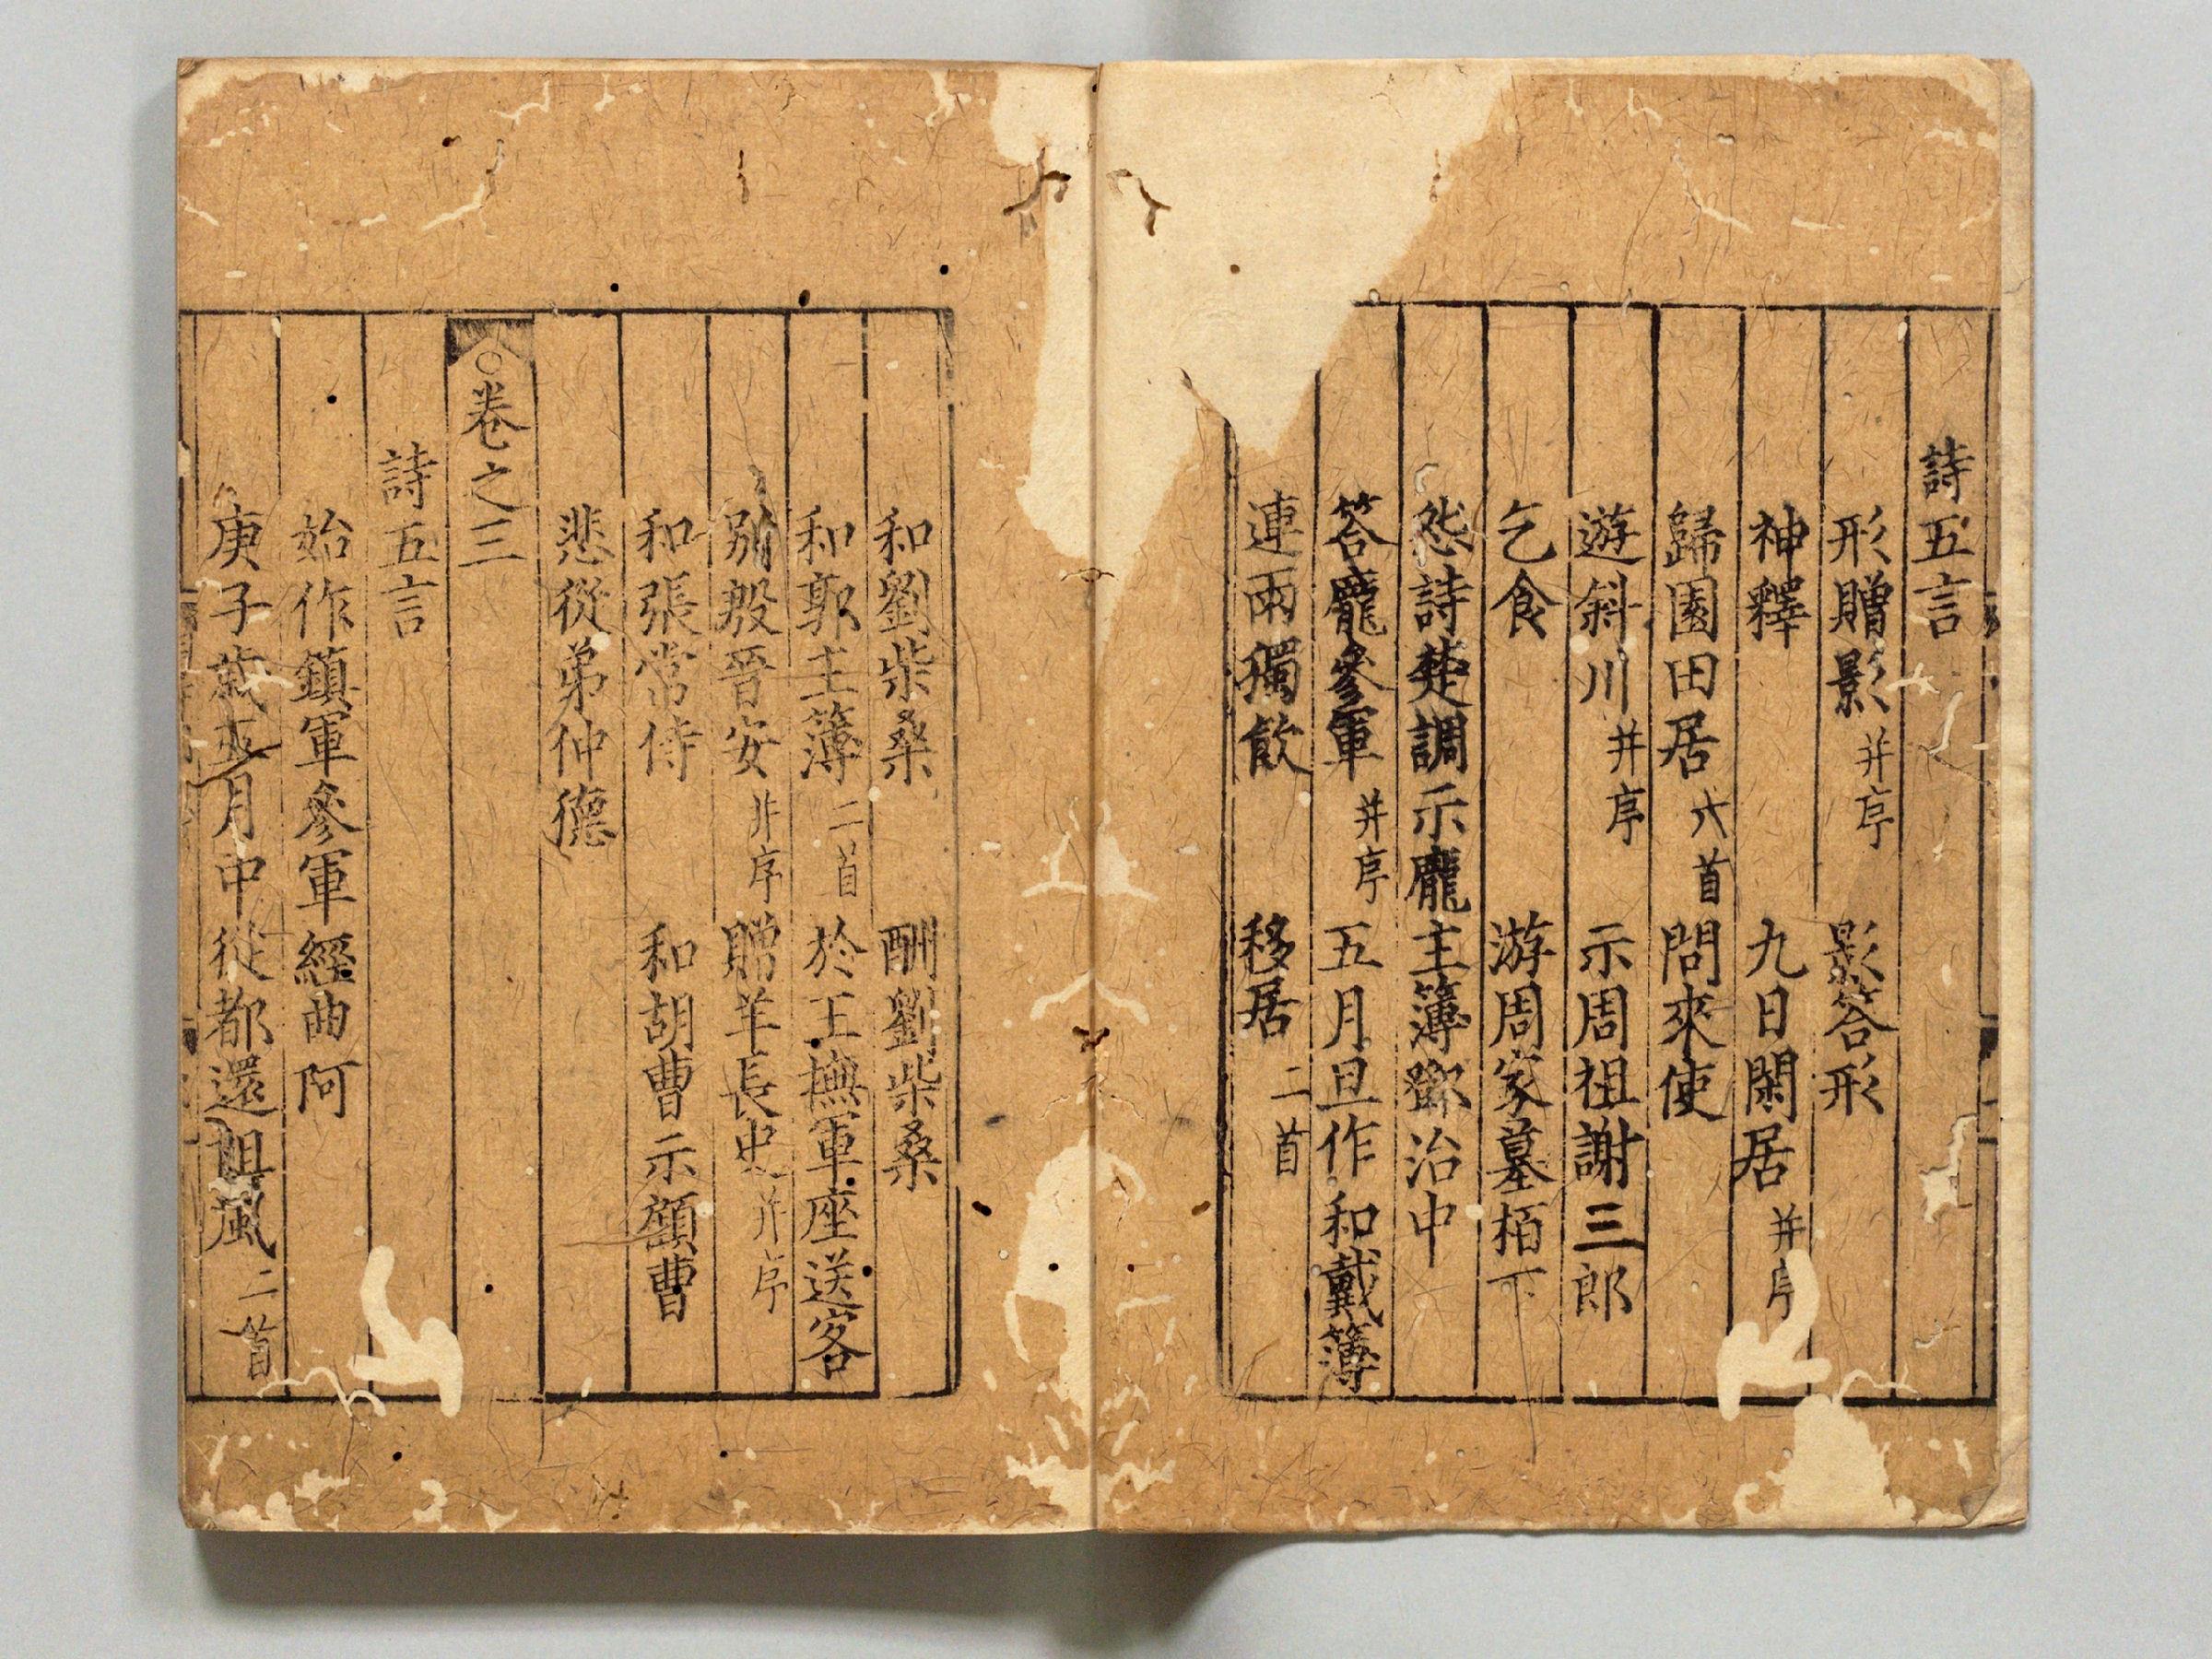 詩五言
形贈影 并序 影答形
神釋 九日閑居 并序
歸園田居 六首 問來使
遊斜川 并序 示周祖謝三郎
乞食 游周家墓栢下
怨詩楚調示龐主簿鄧治中
答龐參軍 并序 五月旦作和戴簿
連雨獨飲 移居 二首
和劉柴桑 酬劉柴桑
和郭主簿 二首 於王撫軍座送客
別殷晉安 并序 贈羊長史 并序
和張常侍 和胡曹示顧曹
悲從弟仲德
○卷之三
詩五言
始作鎮軍參軍經曲阿
庚子歲五月中從都還阻風 二首